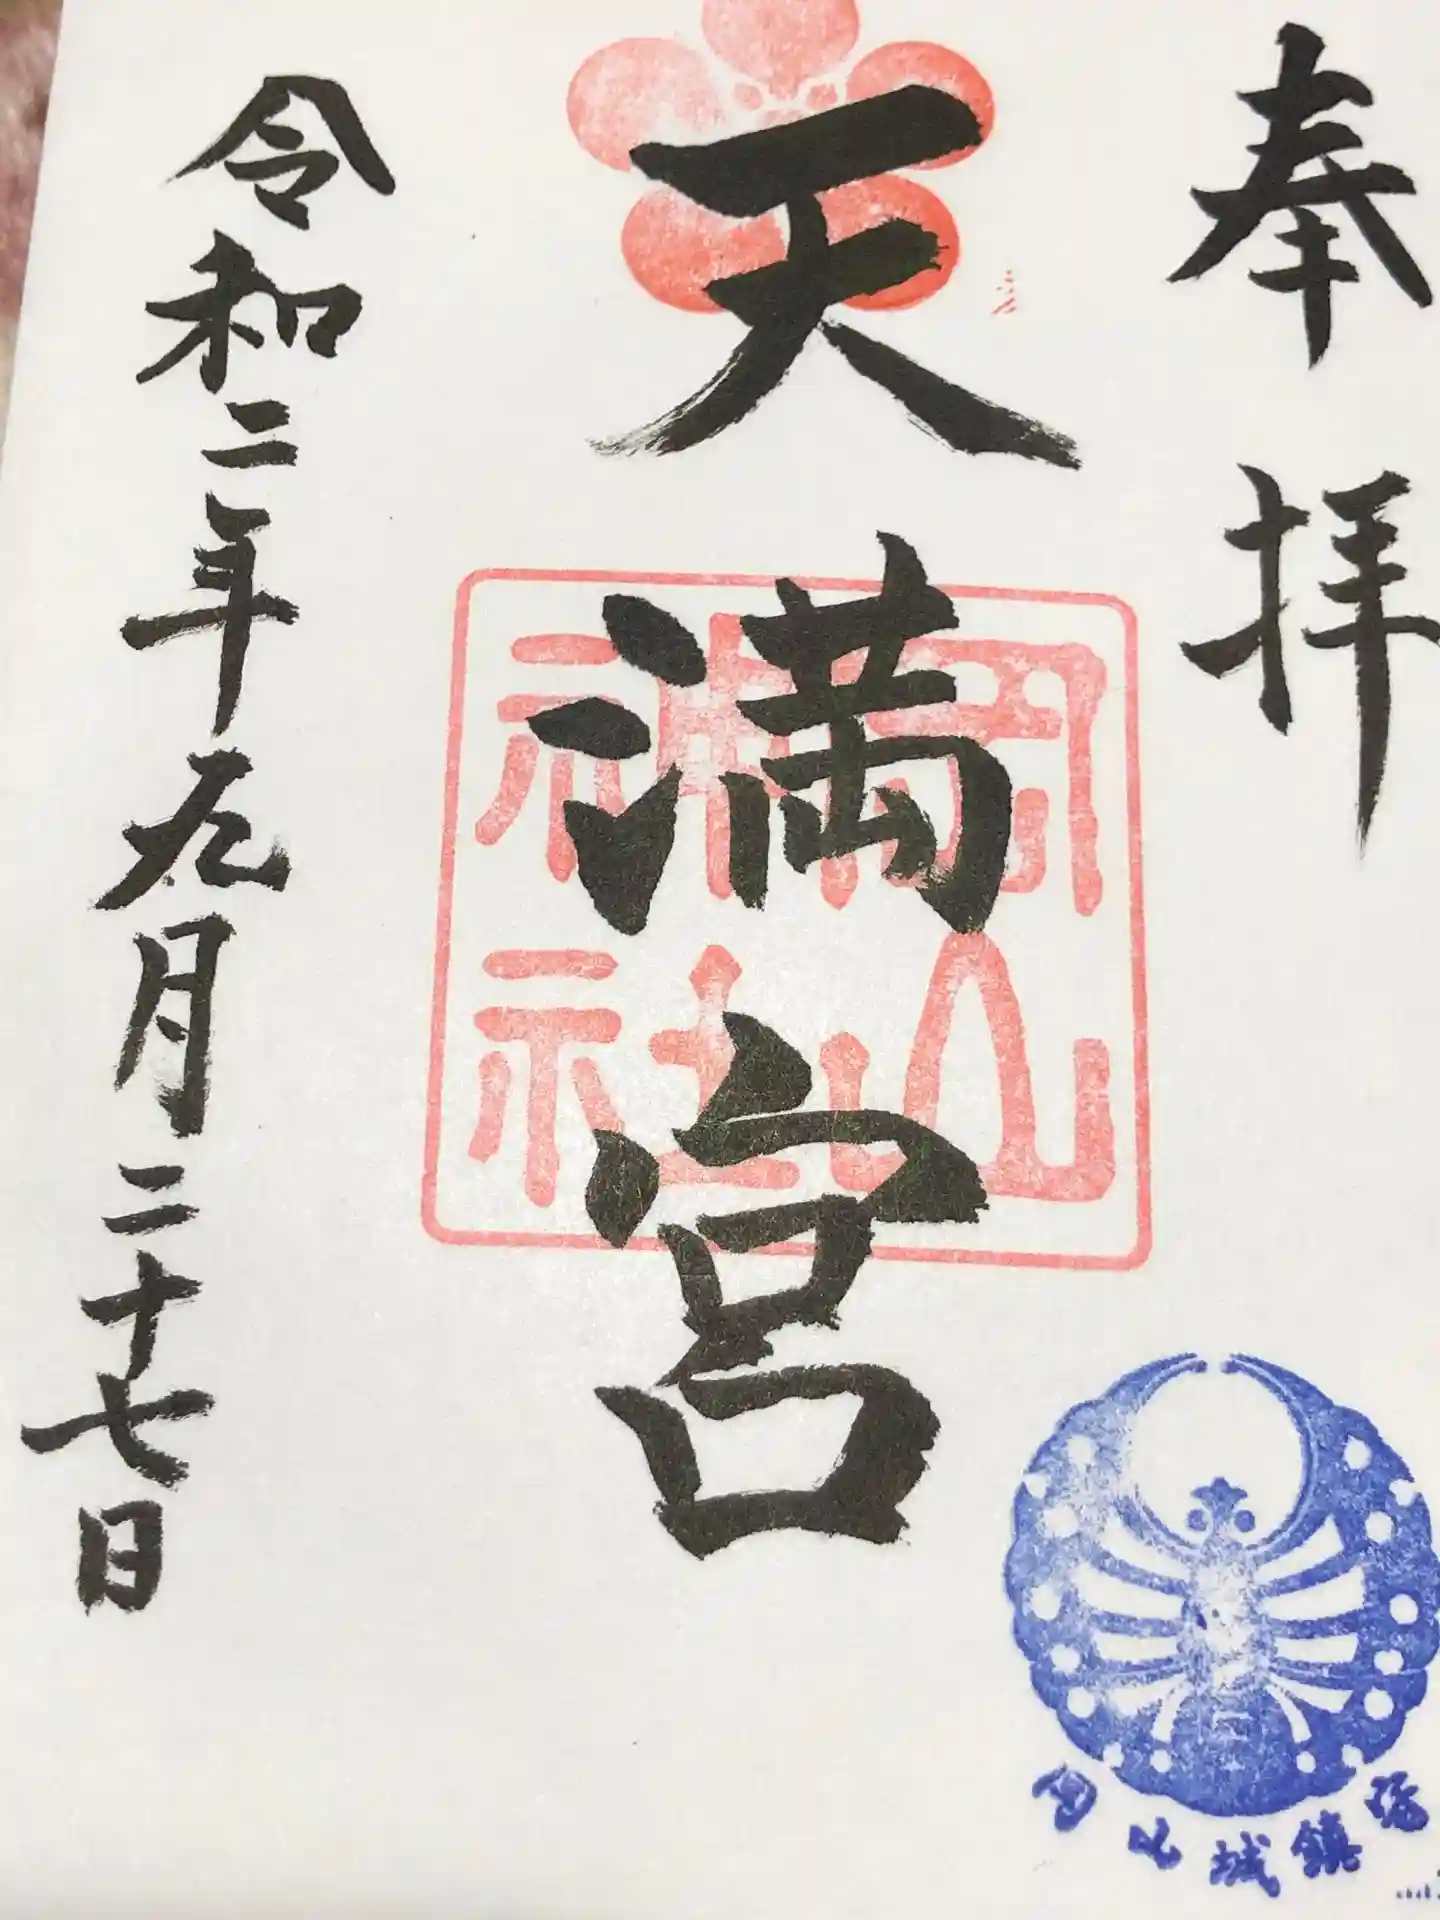 奉拝
天満宮
岡山
神社
令和二年九月二十七日
岡山城鎮